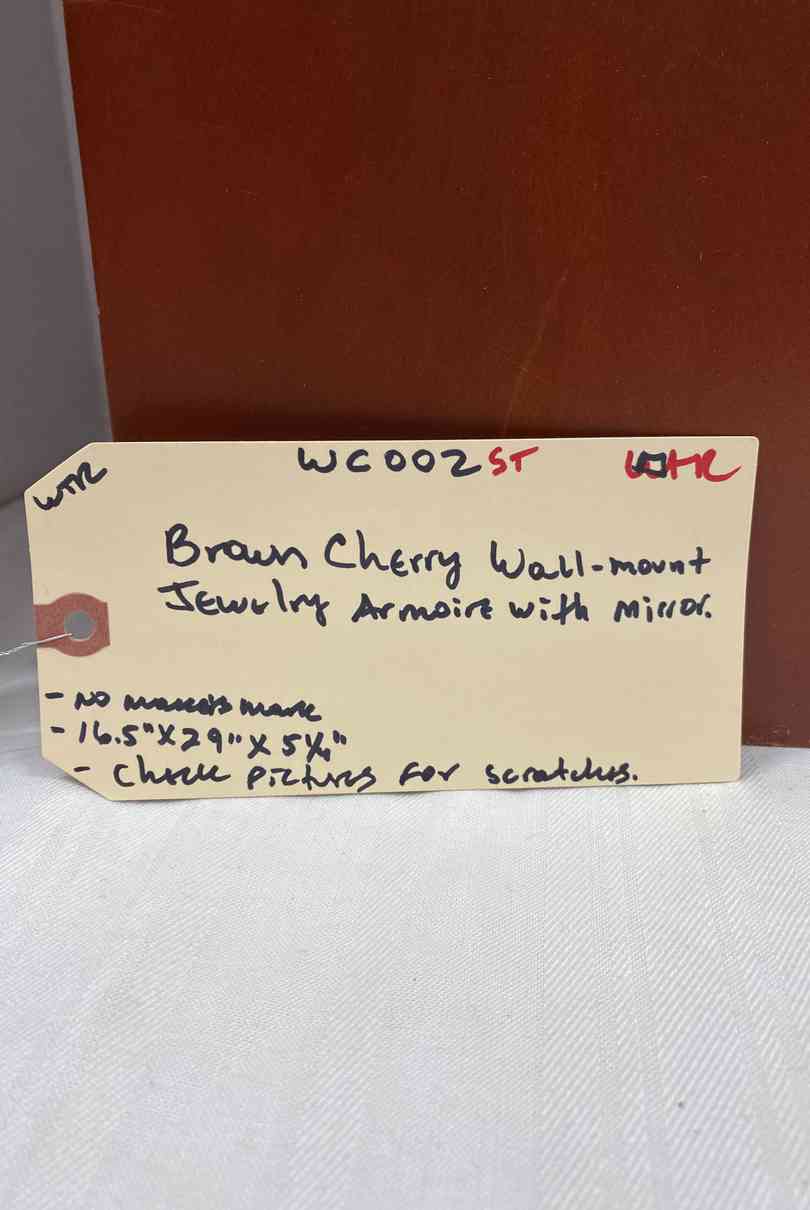 WTR
WC002 ST
Brown Cherry Wall-mount
Jewelry Armoire with Mirror.
- No makers mark
- 16.5" X 29" X 5
- Check pictures for scratches.